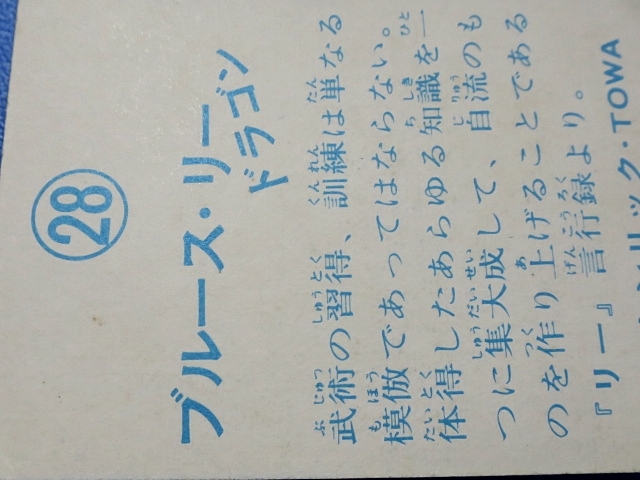 28
ブルース・リー
ドラゴン
武術の習得、訓練は単なる
模倣であってはならない。
体得したあらゆる知識を一
つに集大成して、自流のも
のを作り上げることである
『リー』言行録より。
リック・TOWA